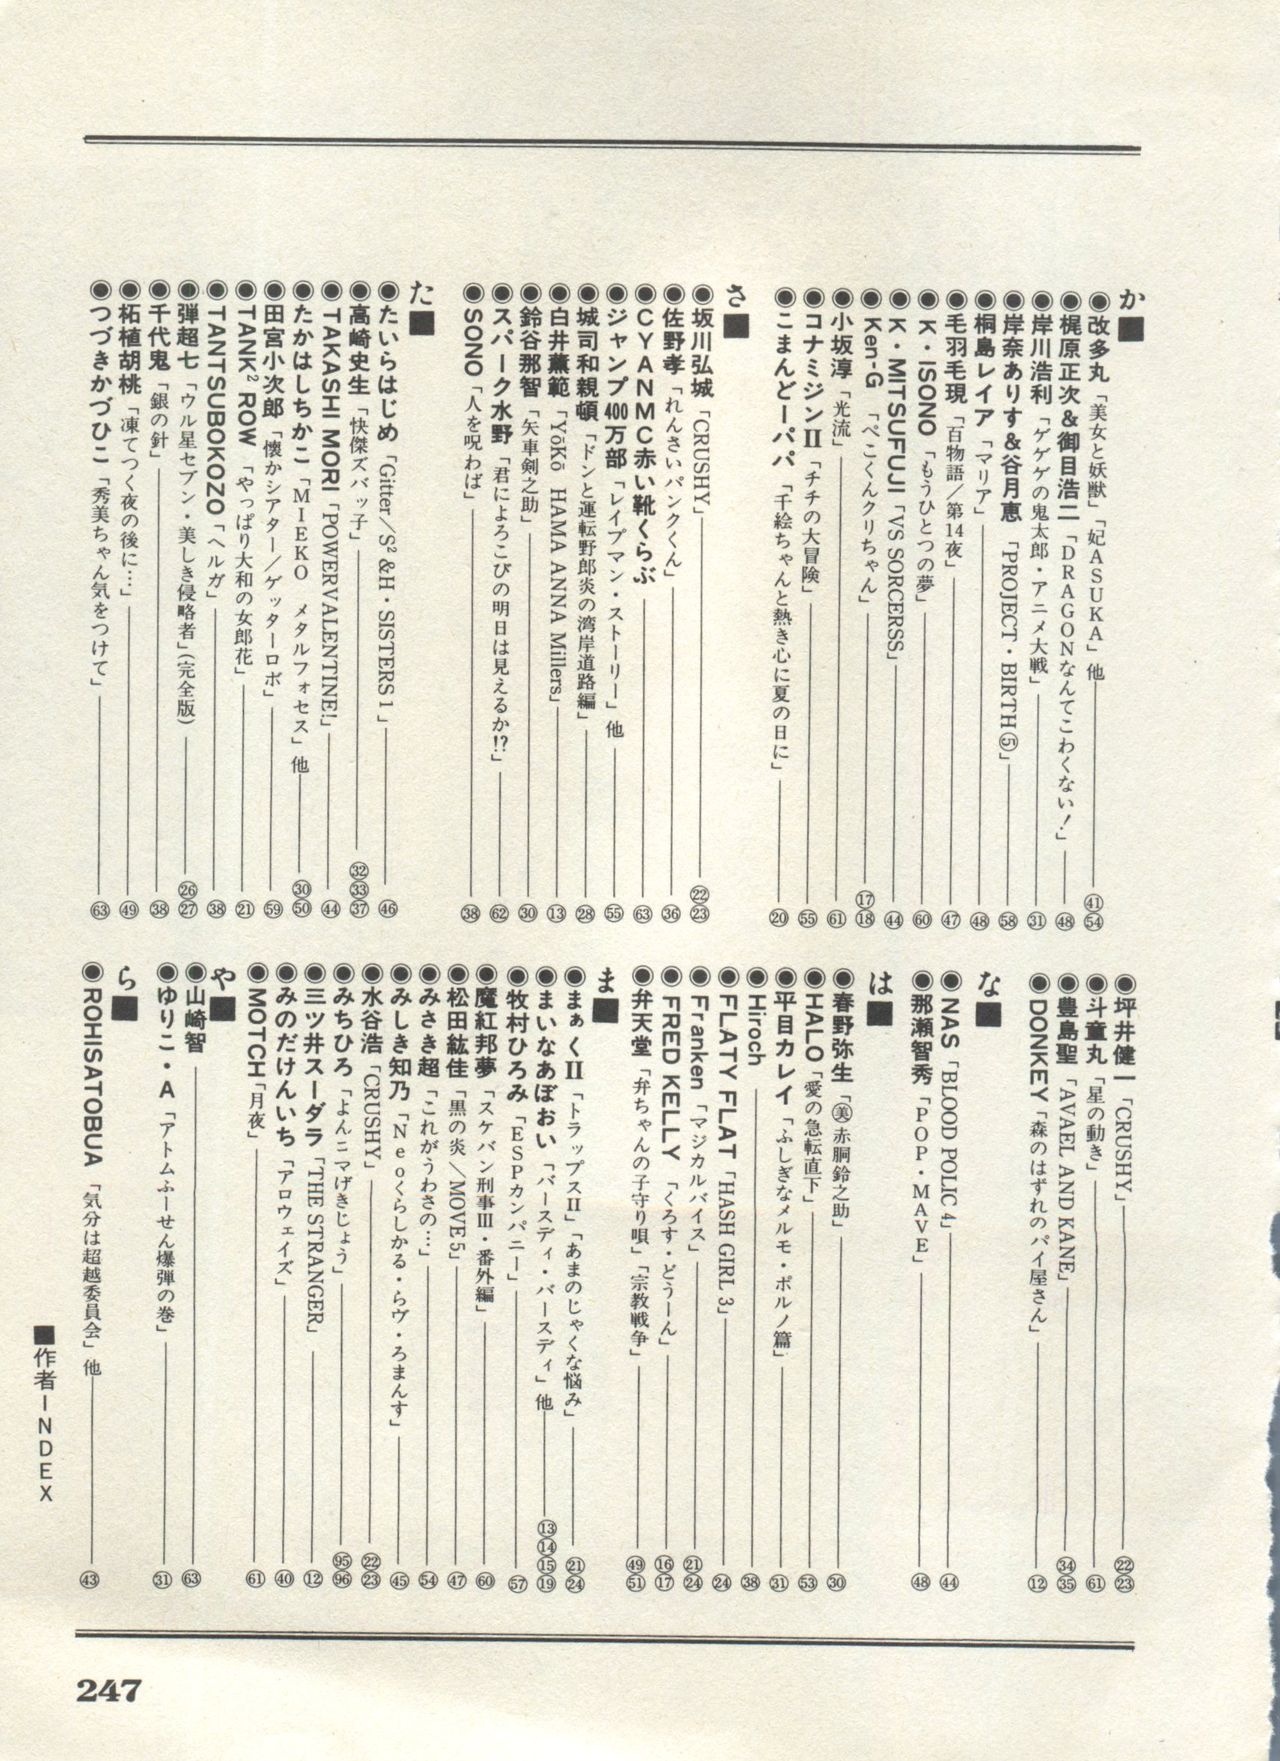 か■
◉改多丸「美女と妖獣」「妃ASUKA」他 ㊶ 54
◉梶原正次&御目浩二「DRAGONなんてこわくない!」 ㊽
◉岸川浩利「ゲゲゲの鬼太郎・アニメ大戦」 ㉛
◉岸奈ありす&谷月恵「PROJECT・BIRTH⑤」 58
◉桐島レイア「マリア」 ㊽
◉毛羽毛現「百物語/第14夜」 ㊼
◉K・ISONO「もうひとつの夢」 60
◉K・MITSUFUJI「VS SORCERSS」 ㊹
◉Ken-G「ぺこくんクリちゃん」 ⑰ ⑱
◉小坂淳「光流」 61
◉コナミジンII「チチの大冒険」 55
◉こまんどーパパ「千絵ちゃんと熱き心に夏の日に」 ⑳
さ■
◉坂川弘城「CRUSHY」 ㉒ ㉓
◉佐野孝「れんさいパンクくん」 ㊱
◉CYANMC赤い靴くらぶ 63
◉ジャンプ400万部「レイプマン・ストーリー」他 55
◉城司和親頓「ドンと運転野郎炎の湾岸道路編」 ㉘
◉白井薫範「YōKō HAMA ANNA Millers」 ⑬
◉鈴谷那智「矢車剣之助」 ㉚
◉スパーク水野「君によろこびの明日は見えるか!?」 62
◉SONO「人を呪わば」 ㊳
た■
◉たいらはじめ「Gitter/S²&H・SISTERS 1」 ㊻
◉高崎史生「快傑ズバッ子」 ㉜ ㉝ ㊲
◉TAKASHI MORI「POWERVALENTINE!」 ㊹
◉たかはしちかこ「MIEKO メタルフォセス」他 ㉚ ㊿
◉田宮小次郎「懐かシアター/ゲッターロボ」 59
◉TANK² ROW「やっぱり大和の女郎花」 ㉑
◉TANTSUBOKOZO「ヘルガ」 ㊳
◉弾超七「ウル星セブン・美しき侵略者」(完全版) ㉖ ㉗
◉千代鬼「銀の針」 ㊳
◉柘植胡桃「凍てつく夜の後に…」 ㊾
◉つづきかづひこ「秀美ちゃん気をつけて」 63
◉坪井健一「CRUSHY」 ㉒ ㉓
◉斗童丸「星の動き」 61
◉豊島聖「AVAEL AND KANE」 ㉞ ㉟
◉DONKEY「森のはずれのパイ屋さん」 ⑫
な■
◉NAS「BLOOD POLIC 4」 ㊹
◉那瀬智秀「POP・MAVE」 ㊽
は■
◉春野弥生「㊎美 赤胴鈴之助」 ㉚
◉HALO「愛の急転直下」 53
◉平目カレイ「ふしぎなメルモ・ポルノ篇」 ㉛
◉Hiroch ㊳
◉FLATY FLAT「HASH GIRL 3」 ㉔
◉Franken「マジカルバイス」 ㉑ ㉔
◉FRED KELLY「くろす・どうーん」 ⑯ ⑰
◉弁天堂「弁ちゃんの子守り唄」「宗教戦争」 ㊾ 51
ま■
◉まぁくII「トラップスII」「あまのじゃくな悩み」 ㉑ ㉔
◉まいなあぼおい「バースディ・バースディ」他 ⑬ ⑭ ⑮ ⑲
◉牧村ひろみ「ESPカンパニー」 57
◉魔紅邦夢「スケバン刑事III・番外編」 60
◉松田紘佳「黒の炎/MOVE 5」 ㊼
◉みさき超「これがうわさの…」 54
◉みしき知乃「Neoくらしかる・らヴ・ろまんす」 ㊺
◉水谷浩「CRUSHY」 ㉒ ㉓
◉みちひろ「よんコマげきじょう」 95 96
◉三ツ井スーダラ「THE STRANGER」 ⑫
◉みのだけんいち「アロウェイズ」 ㊵
◉MOTCH「月夜」 61
や■
◉山崎智 63
◉ゆりこ・A「アトムふーせん爆弾の巻」 ㉛
ら■
◉ROHISATOBUA「気分は超越委員会」他 ㊸
■作者-INDEX
247